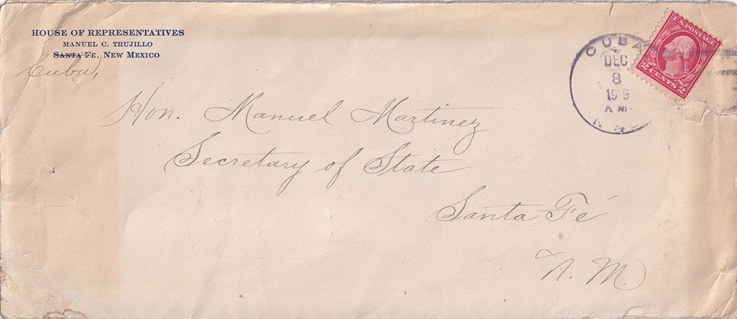 HOUSE OF REPRESENTATIVES
MANUEL C. TRUJILLO
SANTA FE, NEW MEXICO
Cuba,
CUBA
DEC
8
1919
A.M.
N. M.
U.S. POSTAGE
2 CENTS 2
Hon. Manuel Martinez
Secretary of State
Santa Fé
N. M.